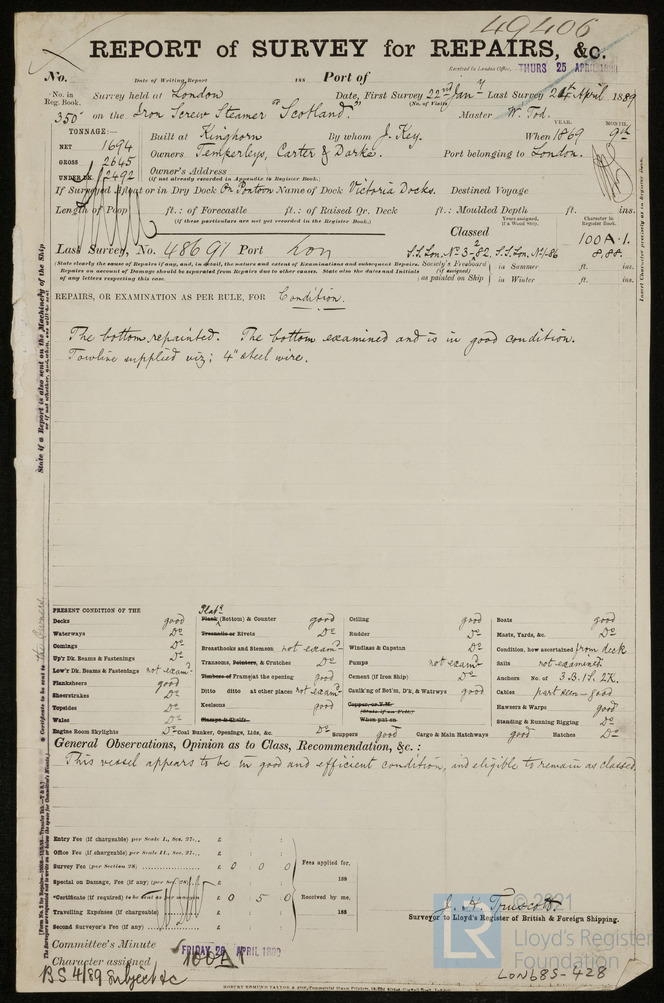 49406
REPORT of SURVEY for REPAIRS, &c.
Received in London Office, THURS 25 APRIL 1889
No. Date of Writing Report 188 Port of
No. in Reg. Book. Survey held at London Date, First Survey 22nd Jany Last Survey 24th April 1889
(No. of Visits)
350 on the Iron Screw Steamer "Scotland." Master W. Tod.
TONNAGE:— YEAR. MONTH.
NET 1694 Built at Kinghorn By whom J. Key. When 1869 9th
GROSS 2645 Owners Temperleys, Carter & Darke. Port belonging to London.
UNDER DK. 2492 Owner's Address
(if not already recorded in Appendix to Register Book.)
If Surveyed Afloat or in Dry Dock On Pontoon Name of Dock Victoria Docks. Destined Voyage
Length of Poop ft.: of Forecastle ft.: of Raised Qr. Deck ft.: Moulded Depth ft. ins.
(if these particulars are not yet recorded in the Register Book.)
Years assigned, if a Wood Ship. Character in Register Book.
Classed 100 A.1.
Last Survey, No. 48691 Port Lon S.S. Lon. No. 3-2.82. S.S. Lon. No. 1-86 8.88.
(State clearly the cause of Repairs if any, and, in detail, the nature and extent of Examinations and subsequent Repairs.
Repairs on account of Damage should be separated from Repairs due to other causes. State also the dates and Initials
of any letters respecting this case.
Society's Freeboard (if assigned) as painted on Ship
in Summer ft. ins.
in Winter ft. ins.
REPAIRS, OR EXAMINATION AS PER RULE, FOR Condition.
The bottom repainted. The bottom examined and is in good condition.
Towline supplied viz: 4" steel wire.
State if a Report is also sent on the Machinery of the Ship
PRESENT CONDITION OF THE
Decks good
Waterways Do
Comings Do
Up'r Dk. Beams & Fastenings Do
Low'r Dk. Beams & Fastenings not examd
Planksheers good
Sheerstrakes Do
Topsides Do
Wales Do
Engine Room Skylights Do
Plank Platg (Bottom) & Counter good
Treenails or Rivets Do
Breasthooks and Stemson not examd
Transoms, Pointers, & Crutches Do
Timbers or Frames at the opening good
Ditto ditto at other places not examd
Keelsons good
Stamps & Shelfs
Coal Bunker, Openings, Lids, &c. Do
Ceiling good
Rudder Do
Windlass & Capstan Do
Pumps not examd
Cement (if Iron Ship) Do
Caulk'ng of Bot'm, D'k, & Watrwys good
Copper, or Y.M.
(State if on Felt)
When put on
Scuppers good Cargo & Main Hatchways good Hatches Do
Boats good
Masts, Yards, &c. Do
Condition, how ascertained from deck
Sails not examined
Anchors No. of 3.B.1S. 2K.
Cables part seen - good
Hawsers & Warps good
Standing & Running Rigging Do
General Observations, Opinion as to Class, Recommendation, &c.:
This vessel appears to be in good and efficient condition, and eligible to remain as classed.
Entry Fee (if chargeable) per Scale I., Sec. 27 £ : :
Office Fee (if chargeable) per Scale II., Sec. 27 £ : :
Survey Fee (per Section 28) £ 0 0 0
Special on Damage, Fee (if any) (per Sec. 28) £ : :
*Certificate (if required) to be sent as per margin £ 0 5 0
Travelling Expenses (if chargeable) £ : :
Second Surveyor's Fee (if any) £ : :
Fees applied for, 188
Received by me, 188
J. A. Truscott.
Surveyor to Lloyd's Register of British & Foreign Shipping.
Committee's Minute FRIDAY 26 APRIL 1889
Character assigned 100A1
BS 4/89 subject &c
LON685-428
© 2021
LR
Lloyd's Register
Foundation